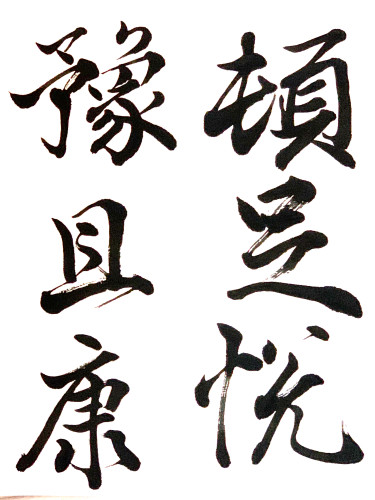 頓足悦
豫且康